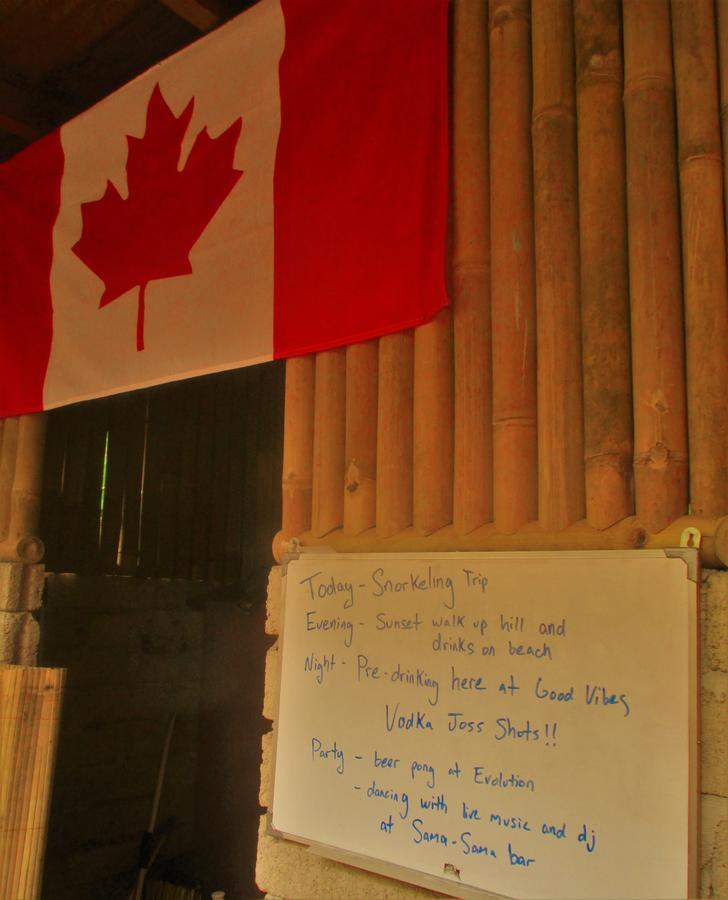 Today - Snorkeling Trip
Evening - Sunset walk up hill and
drinks on beach
Night - Pre-drinking here at Good Vibes
Vodka Joss Shots!!
Party - beer pong at Evolution
- dancing with live music and dj
at Sama-Sama bar